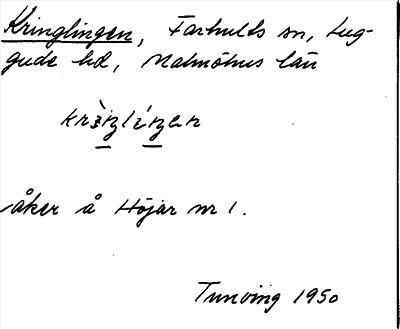 Kringlingen, Farhults sn, Lug-
gude hd, Malmöhus län
åker å Höjar nr 1.
Tunving 1950